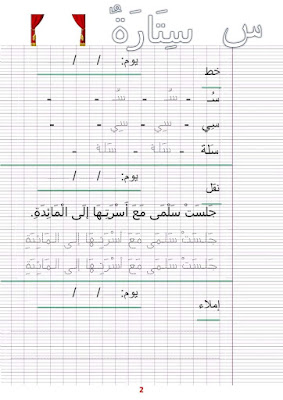 س سِتَارَةٌ
يوم: / /
خط
سُـ - سُـ - سُـ - -
سي - سي - سي - -
سَلة - سَلة - سَلة -
يوم: / /
نقل
جَلَسَتْ سَلْمَى مَعَ أُسْرَتِـهَا إِلَى الْمَائِدَةِ.
جَلَسَتْ سَلْمَى مَعَ أُسْرَتِـهَا إِلَى الْمَائِدَةِ
جَلَسَتْ سَلْمَى مَعَ أُسْرَتِـهَا إِلَى الْمَائِدَةِ
يوم: / /
إملاء
2